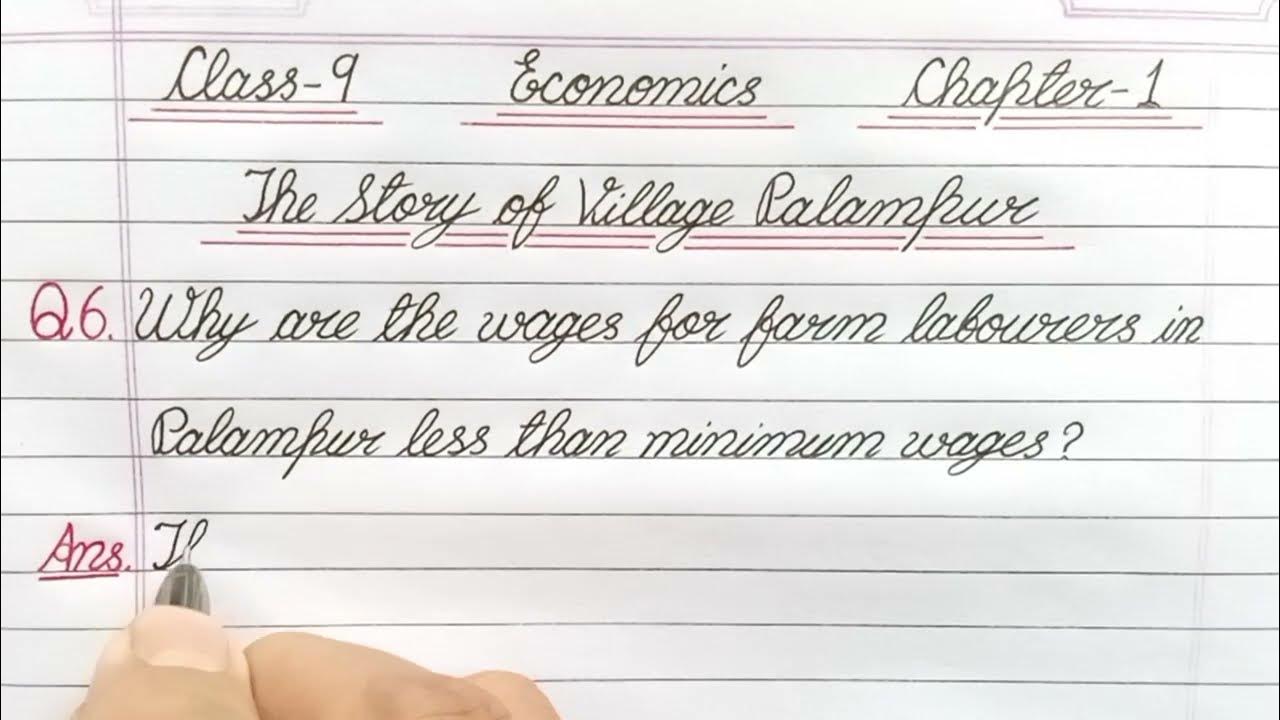 Class-9 Economics Chapter-1
The Story of Village Palampur
Q6. Why are the wages for farm labourers in
Palampur less than minimum wages?
Ans. Th